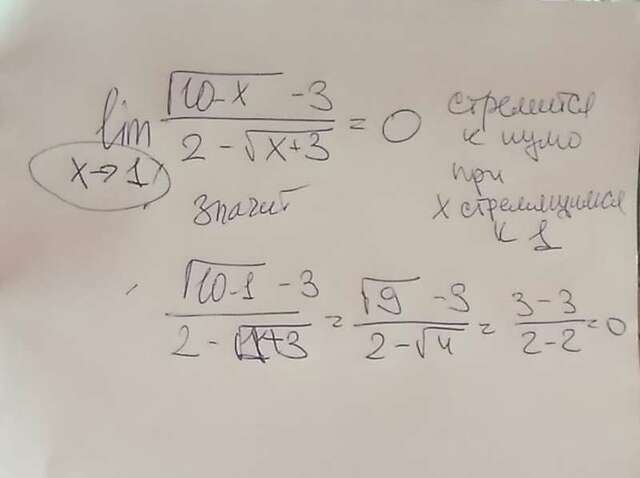 lim x→1 (√(10-x) - 3)/(2 - √(x+3)) = 0
стремится
к нулю
при
x стремящимся
к 1
значит
(√(10-1) - 3)/(2 - √(1+3)) = (√9 - 3)/(2 - √4) = (3-3)/(2-2) = 0